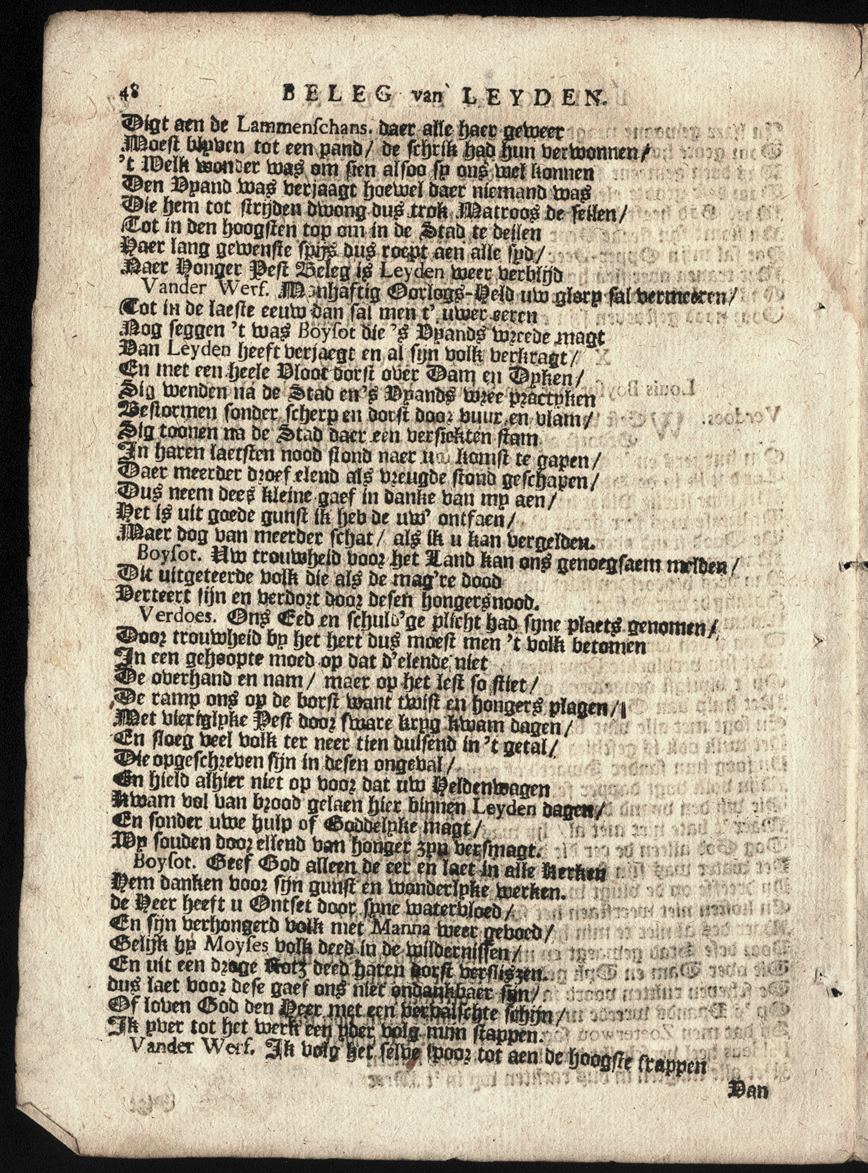 48 BELEG van LEYDEN.
Digt aen de Lammenschans. daer alle haer geweer
Moest blyven tot een pand / de schrik had hun verwonnen /
't Welk wonder was om sien alsoo sy ons wel konnen
Den Vyand was verjaagt hoewel daer niemand was
Die hem tot strijden dwong dus trok Matroos de seilen /
Tot in den hoogsten top om in de Stad te deilen
Haer lang gewenste spijs dus roept aen alle syd /
Naer Honger Pest Beleg is Leyden weer verblijd
Vander Werf. Manhaftig Oorlogs-Held uw glory sal vermeeren /
Tot in de laeste eeuw dan sal men t' uwer eeren
Nog seggen 't was Boysot die 's Vyands wreede magt
Van Leyden heeft verjaegt en al sijn volk verkragt /
En met een heele Vloot dorst over Dam en Dyken /
Sig wenden na de Stad en 's Vyands wree practyken
Bestormen sonder scherp en dorst door vuur en vlam /
Sig toonen na de Stad daer een versiekten stam
In haren laetsten nood stond naer uw komst te gapen /
Daer meerder droef elend als vreugde stond geschapen /
Dus neem dees kleine gaef in danke van my aen /
Het is uit goede gunst ik heb de uw' ontfaen /
Maer dog van meerder schat / als ik u kan vergelden.
Boysot. Uw trouwheid voor het Land kan ons genoegsaem melden /
Dit uitgeteerde volk die als de mag're dood
Verteert sijn en verdort door desen hongersnood.
Verdoes. Ons Eed en schuld'ge plicht had syne plaets genomen /
Door trouwheid by het hert dus moest men 't volk betomen
In een gehoopte moed op dat d'elende niet
De overhand en nam / maer op het lest so stiet /
De ramp ons op de borst want twist en hongers plagen /
Met vierigtyke Pest door sware kryg kwam dagen /
En sloeg veel volk ter neer tien duisend in 't getal /
Die opgeschreven sijn in desen ongeval /
En hield alhier niet op voor dat uw Heldenwagen
Kwam vol van brood gelaen hier binnen Leyden dagen /
En sonder uwe hulp of Goddelyke magt /
Wy souden door ellend van honger zyn versmagt.
Boysot. Geef God alleen de eer en laet in alle Kerken
Hem danken voor sijn gunst en wonderlyke werken.
de Heer heeft u Ontset door syne watervloed /
En sijn verhongerd volk met Manna weer gevoed /
Gelijk hy Moyses volk deed in de wildernissen /
En uit een droge Rotz deed haren dorst versliszen.
dus laet voor dese gaef ons niet ondankbaer sijn /
Of loven God den Heer met een vervalschte schijn /
Ik yver tot het werk een yder volg mijn stappen.
Vander Werf. Ik volg het selve spoor tot aen de hoogste trappen
Dan